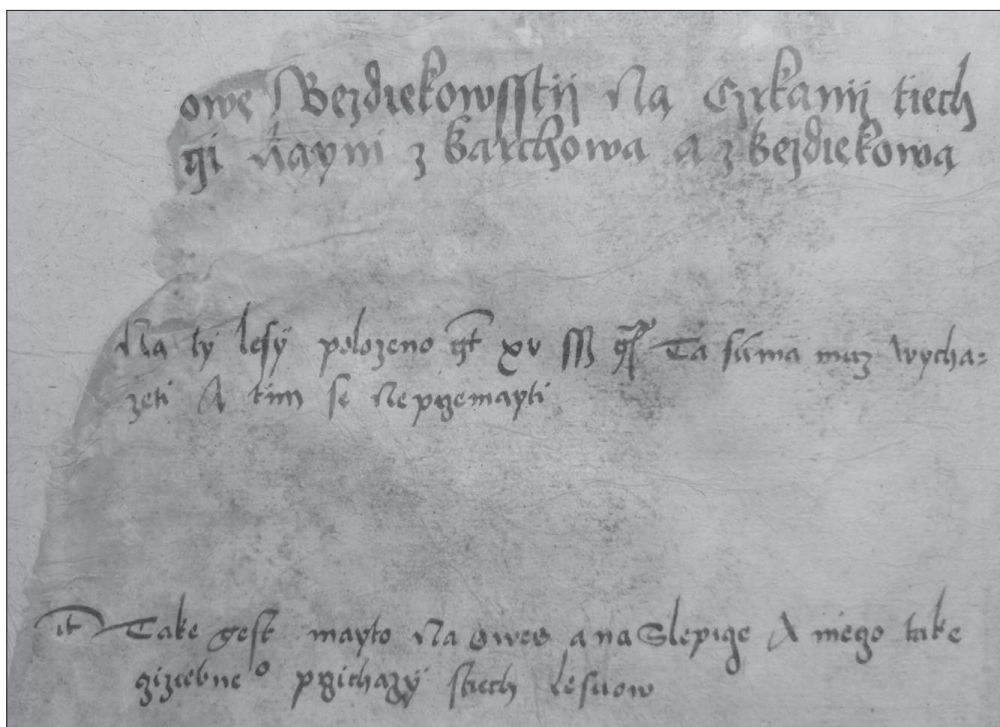 owe Bezdiekowsstij Na Czrkanij tiech
gi hayni z karchowa a z bezdiekowa
Na ty lesy polozeno gt xv ſſ gr Ta suma muz wycha=
zeti A tim se nepgemayti
it Take gest mayto Na owes a na Slepige A niego take
gizdebne° pgichazy stiech lesuow